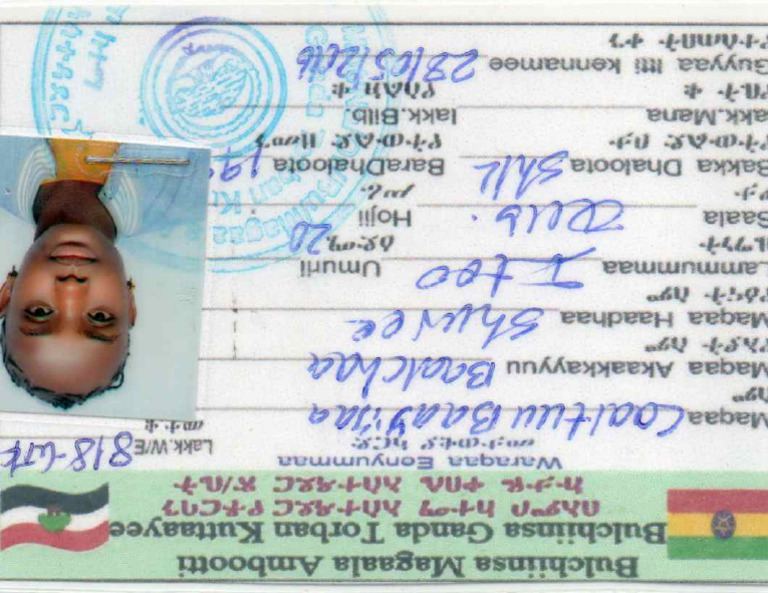 Bulchiinsa Magaala Ambootti
Bulchiinsa Ganda Torban Kuttaayee
በአምቦ ከተማ አስተዳደር የተርባን
ኩታዬ ቀበሌ አስተዳደር ጽ/ቤት
Waraqaa Eenyummaa
መታወቂያ ካርድ
Lakk.W/E 818
Maqaa Caaltuu Baayisaa
ስም
Maqaa Akaakkayyuu Baalchaa
የአያት ስም
Maqaa Haadhaa Shuree
የእናት ስም
Lammummaa Itoo Umurii 20
ዜግነት ዕድሜ
Saala Dub. Hojii
ጾታ ሥራ
Bakka Dhaloota Sh/K BaraDhaloota 19
የትውልድ ቦታ የትውልድ ዘመን
lakk.Mana lakk.Bilb
የቤት ቁ የስልክ ቁ
Guyyaa Itti kennamee 28/05/2016
የተሰጠበት ቀን